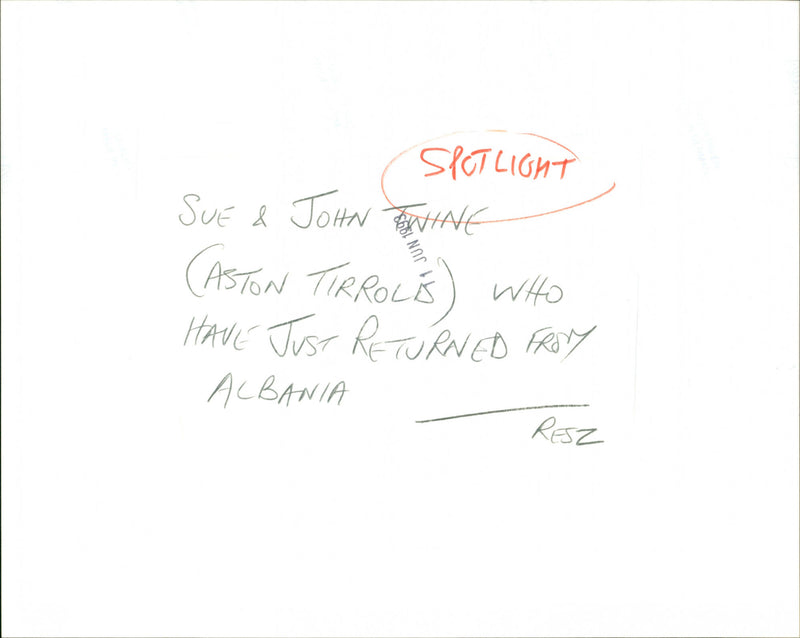 SPOTLIGHT
SUE & JOHN TWINE
1 JUN 1993
(ASTON TIRROLDS) WHO
HAVE JUST RETURNED FROM
ALBANIA
RESZ